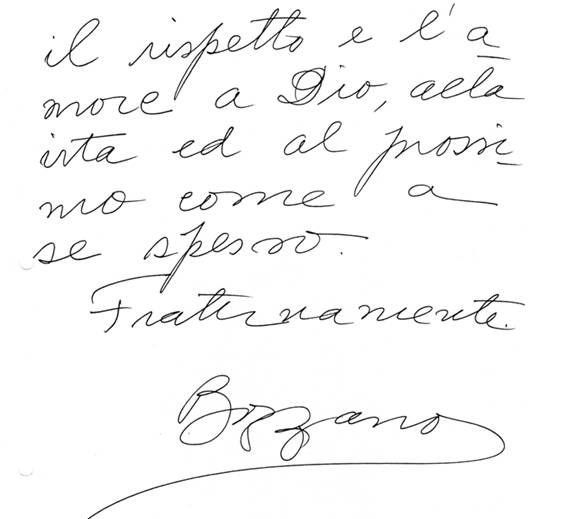 il rispetto e l'a-
more a Dio, alla
vita ed al prossi-
mo come a
se spesso.
Fraternamente.
Bozzano